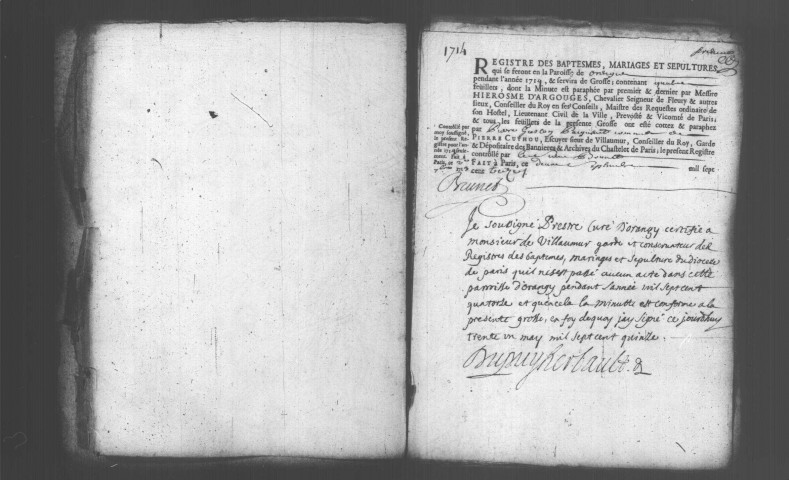 1714
REGISTRE DES BAPTESMES, MARIAGES ET SEPULTURES
qui se feront en la Paroisse de
pendant l'année 1714, & servira de Grosse; contenant quatre
feuillets, dont la Minute est paraphée par premier & dernier par Messire
HIEROSME D'ARGOUGES, Chevalier Seigneur de Fleury & autres
lieux, Conseiller du Roy en ses Conseils, Maistre des Requestes ordinaire de
son Hostel, Lieutenant Civil de la Ville, Prevosté & Vicomté de Paris;
& tous les feuillets de la presente Grosse ont esté cottez & paraphez
par
PIERRE CUTHOU, Escuyer sieur de Villaumur, Conseiller du Roy, Garde
& Dépositaire des Bannieres & Archives du Chastelet de Paris; le present Registre
controllé par
FAIT à Paris, ce mil sept
cent treize
Controllé par
moy soussigné,
la presente
Brunet
Je soubsigné Prestre Curé D'orangy certifie a
monsieur de Villaumur garde et conservateur des
Registres des baptemes, mariages et sepulture du diocese
de paris quil nest passé aucun acte dans cette
parroisse d'orangy pendant l'année mil sept cent
quatorse et quencela la minutte est conforme a la
presente grosse, en foy dequoy jay signé ce jourdhuy
trente un may mil sept cent quinse.